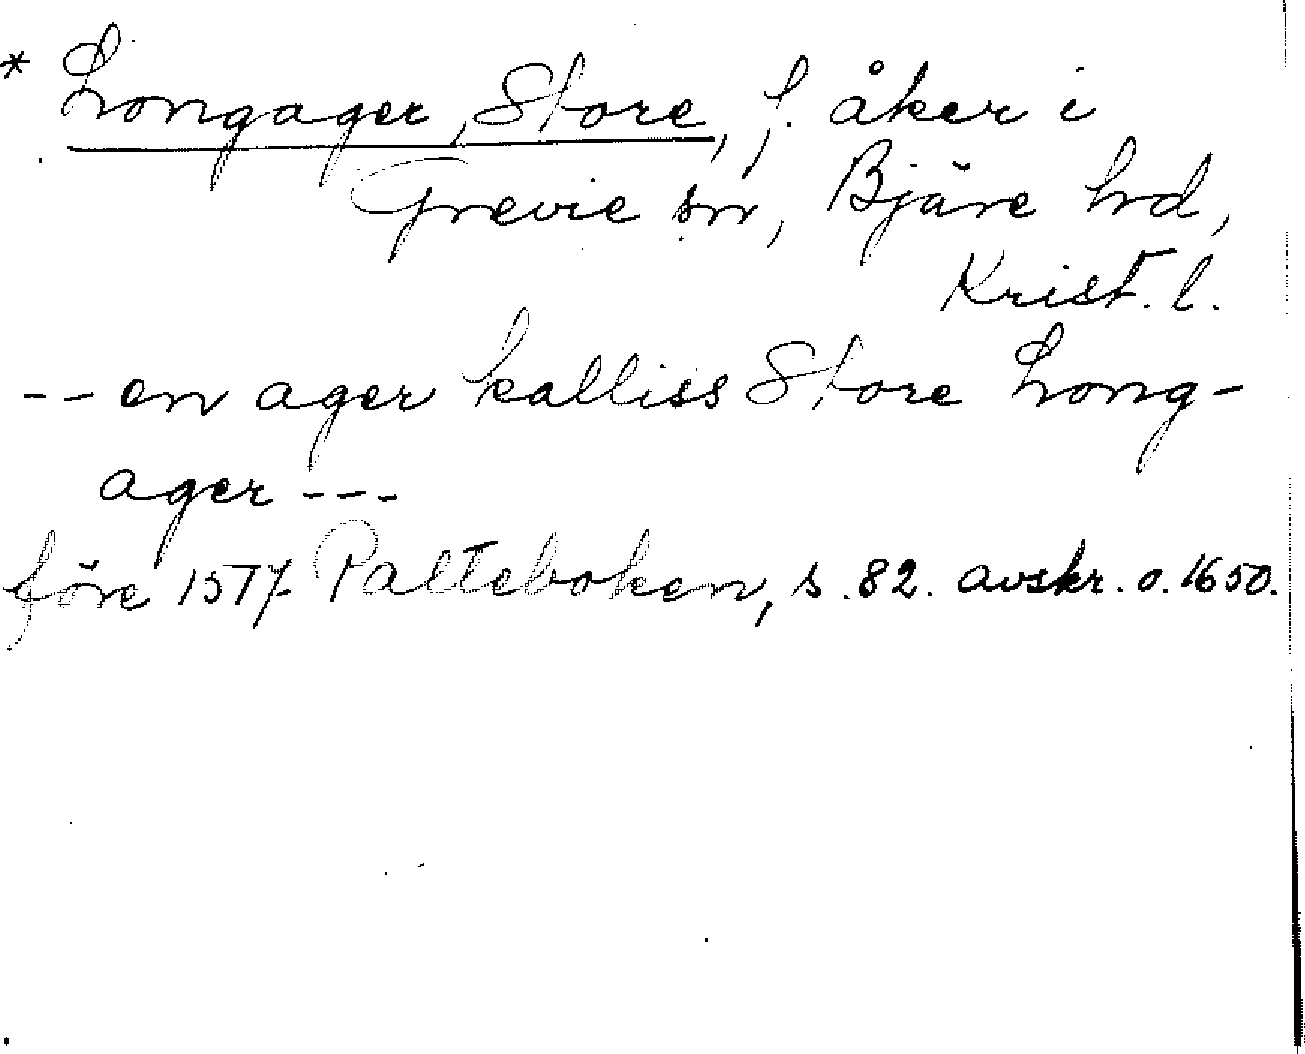 * Longager, Store, f. åker i
Grevie sn, Bjäre hd,
Krist. l.
-- en ager kalliss Store Long-
ager ---
före 1577 Palteboken, s. 82. avskr. o. 1650.